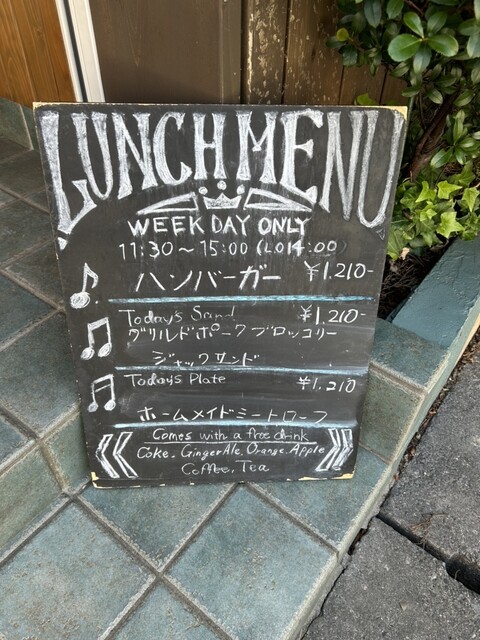 LUNCH MENU
WEEKDAY ONLY
11:30～15:00 (LO14:00)
ハンバーガー ¥1,210-
Today's Sand ¥1,210-
グリルドポークブロッコリー
ジャックサンド
Today's Plate ¥1,210
ホームメイドミートローフ
Comes with a free drink
Coke. GingerAle, Orange. Apple
Coffee, Tea